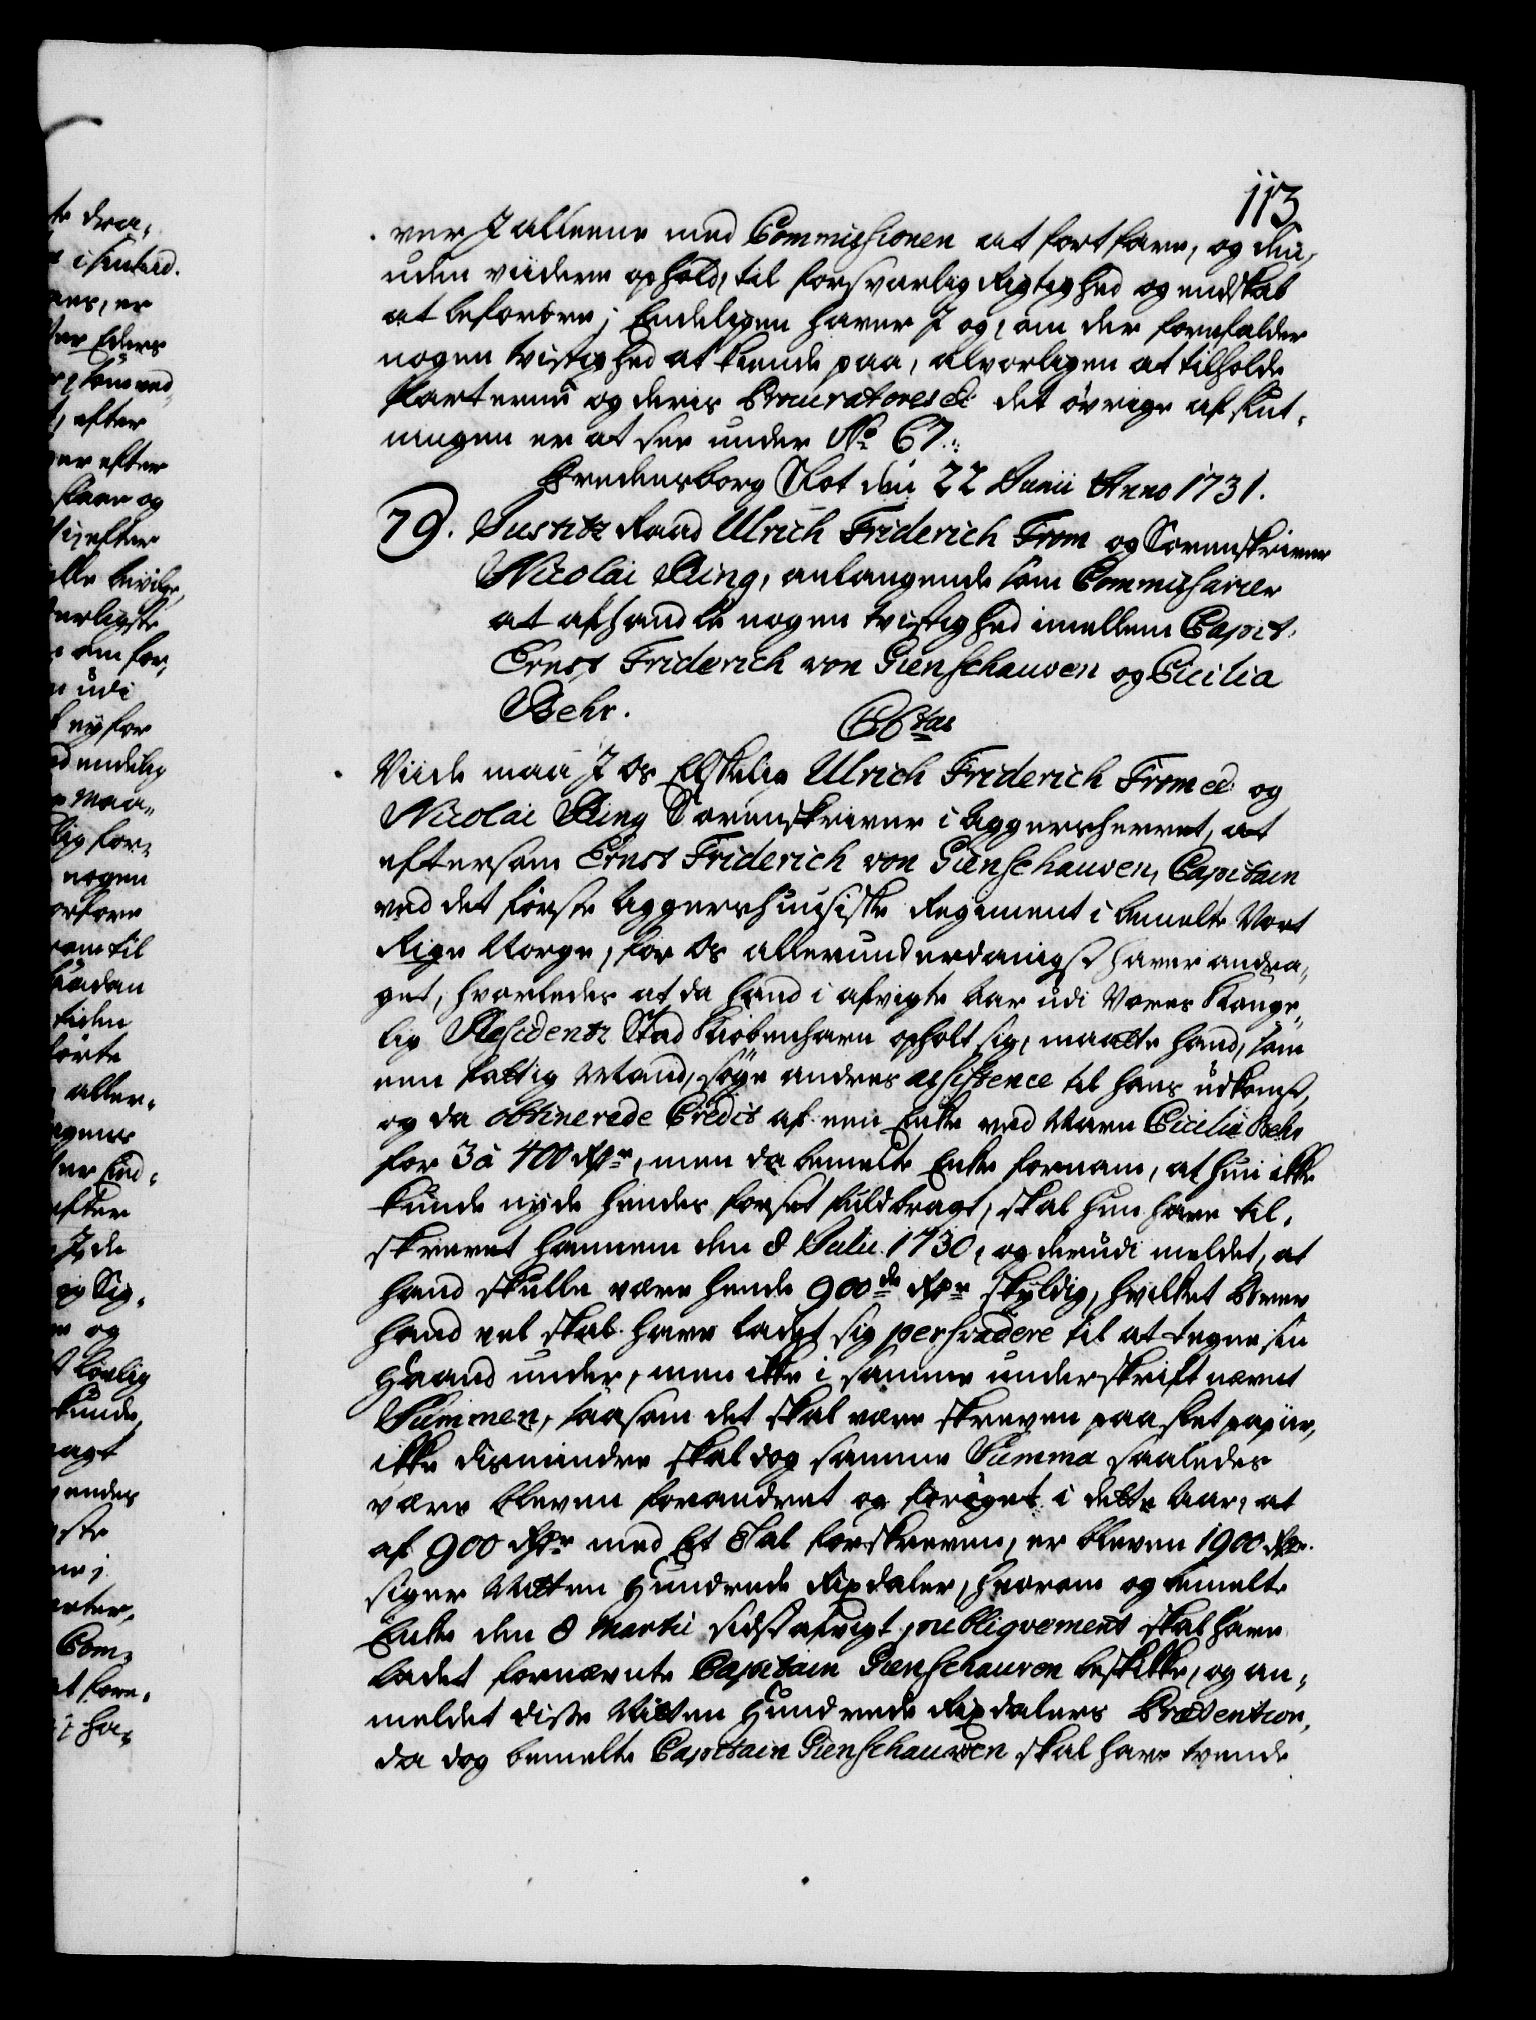 113
ver I alleene med Commissionen at fortfare, og den,
uden viidere ophold, til forsvarlig Rigtighed og endskab
at befordre; Endeligen haver I og, om der forrefalder
nogen tvistighed at kiende paa, alvorligen at tilholde
Parterne og deris Procuratores &c det övrige af slut-
ningen er at see under No 67.
Fredensborg Slot den 22 Junii Anno 1731.
79. Justitz Raad Ulrich Friderich From og Sorenskriver
Nicolai Ring, anlangende som Commissarier
at afhandle nogen tvistighed imellem Capit.
Ernst Friderich von Gienschauven og Cicilia
Behr.
C6tus
Viide maa I Os Elskelig Ulrich Friderich From &c og
Nicolai Ring Sorenskriver i Aggersherret, at
eftersom Ernst Friderich von Gienschauven, Capitain
ved det förste Aggershuusiske Regiment i bemelte Vort
Rige Norge, for Os allerunderdanigst haver andra-
get, hvorledes at da hand i afvigte Aar udi Vores Konge-
lig Residentz Stad Kiöbenhavn opholt sig, maatte hand, som
een fattig Mand, söge andres assistence til hans udkomst,
og da obtinerede Credit af een Enke ved Navn Cicilia Behr
for 3 à 400 Rdr, men da bemelte Enke fornam, at hun ikke
kunde nyde hendes forset fuldbragt, skal hun have til-
skrevet hannem den 8 Julii 1730, og derudi meldet, at
hand skulle være hende 900de Rdr skyldig, hvilket Brev
hand vel skal have ladet sig persvadere til at tegne sin
Haand under, men ikke i samme underskrift nævnt
Summen, saasom det skal være skreven paa slet papiir,
ikke dismindre skal dog samme Summa saaledes
være bleven forandret og foröget i dette Aar, at
af 900 Rdr med Et Tal forskreven, er bleven 1900 Rdr.
siger Nitten Hundrede Rixdaler, hvorom og bemelte
Enke den 8 Martii sidstafvigt publiqvement skal have
ladet fornævnte Capitain Gienschauven beskikke, og an-
meldet disse Nitten Hundrede Rixdalers Prætention,
da dog bemelte Capitain Gienschauven skal have tvende